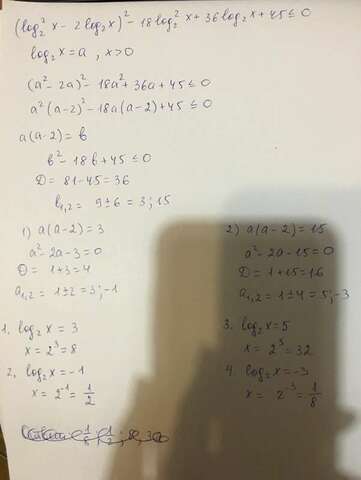 (log₂²x - 2 log₂x)² - 18 log₂²x + 36 log₂x + 45 ≤ 0
log₂x = a , x > 0
(a² - 2a)² - 18a² + 36a + 45 ≤ 0
a²(a-2)² - 18a(a-2) + 45 ≤ 0
a(a-2) = b
b² - 18b + 45 ≤ 0
D = 81 - 45 = 36
b₁,₂ = 9 ± 6 = 3 ; 15
1) a(a-2) = 3
a² - 2a - 3 = 0
D = 1 + 3 = 4
a₁,₂ = 1 ± 2 = 3 ; -1
2) a(a-2) = 15
a² - 2a - 15 = 0
D = 1 + 15 = 16
a₁,₂ = 1 ± 4 = 5 ; -3
1. log₂x = 3
x = 2³ = 8
2. log₂x = -1
x = 2⁻¹ = 1/2
3. log₂x = 5
x = 2⁵ = 32
4. log₂x = -3
x = 2⁻³ = 1/8